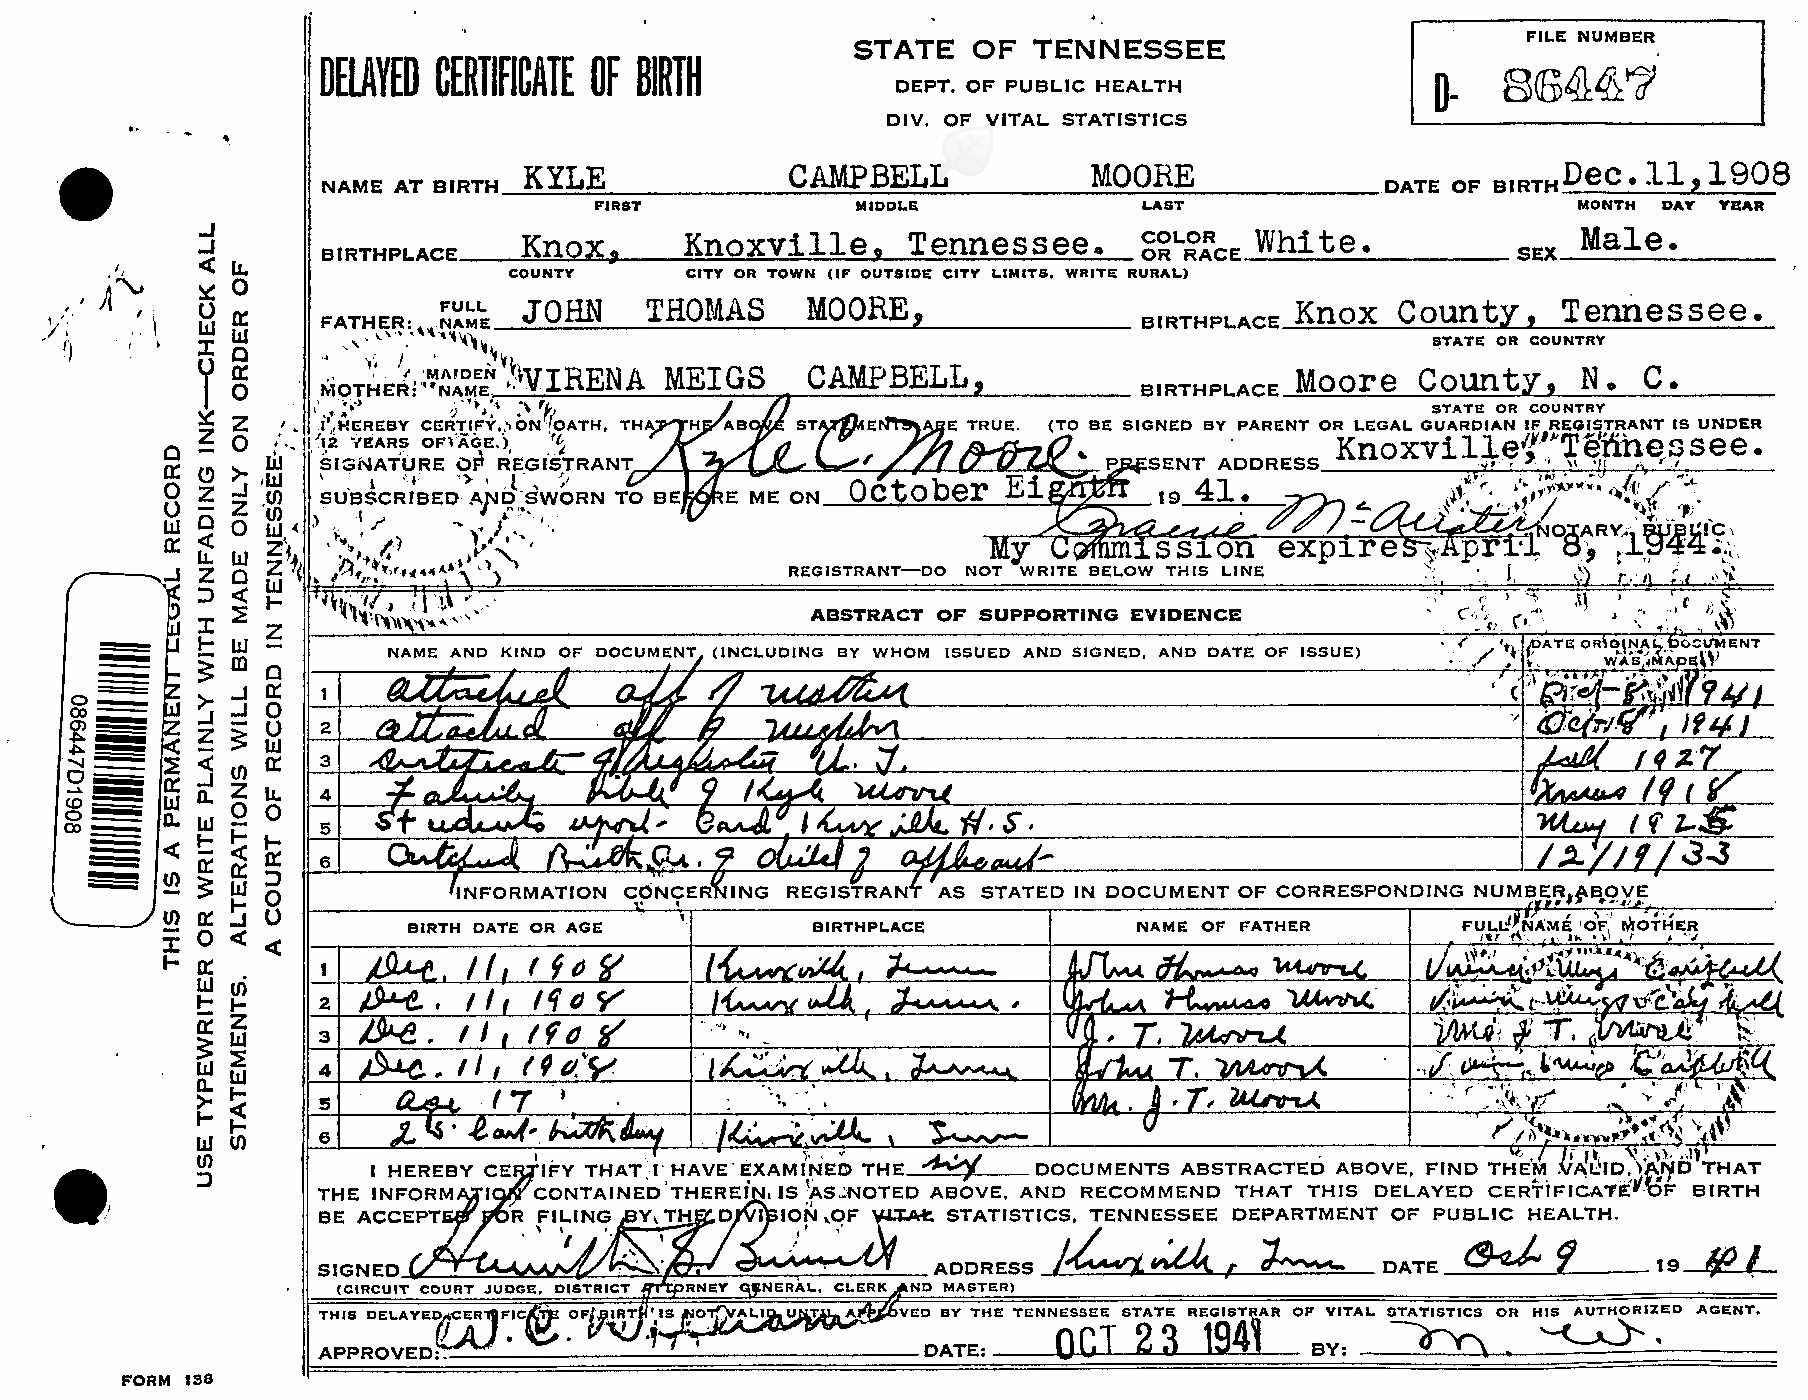 STATE OF TENNESSEE
DEPT. OF PUBLIC HEALTH
DIV. OF VITAL STATISTICS
DELAYED CERTIFICATE OF BIRTH
FILE NUMBER
D- 86447
NAME AT BIRTH KYLE CAMPBELL MOORE DATE OF BIRTH Dec.11,1908
FIRST MIDDLE LAST MONTH DAY YEAR
BIRTHPLACE Knox, Knoxville, Tennessee. COLOR OR RACE White. SEX Male.
COUNTY CITY OR TOWN (IF OUTSIDE CITY LIMITS, WRITE RURAL)
FATHER: FULL NAME JOHN THOMAS MOORE, BIRTHPLACE Knox County, Tennessee.
STATE OR COUNTRY
MOTHER: MAIDEN NAME VIRENA MEIGS CAMPBELL, BIRTHPLACE Moore County, N. C.
STATE OR COUNTRY
I HEREBY CERTIFY, ON OATH, THAT THE ABOVE STATEMENTS ARE TRUE. (TO BE SIGNED BY PARENT OR LEGAL GUARDIAN IF REGISTRANT IS UNDER
12 YEARS OF AGE.)
SIGNATURE OF REGISTRANT Kyle C. Moore. PRESENT ADDRESS Knoxville, Tennessee.
SUBSCRIBED AND SWORN TO BEFORE ME ON October Eighth 19 41.
NOTARY PUBLIC
My Commission expires April 8, 1944.
REGISTRANT—DO NOT WRITE BELOW THIS LINE
ABSTRACT OF SUPPORTING EVIDENCE
NAME AND KIND OF DOCUMENT (INCLUDING BY WHOM ISSUED AND SIGNED, AND DATE OF ISSUE) DATE ORIGINAL DOCUMENT WAS MADE
1 attached aff of mother Oct-8, 1941
2 attached aff of neighbor Oct 8, 1941
3 Certificate of Register U. T. fall 1927
4 Family bible of Kyle Moore Xmas 1918
5 Students report-Card Knoxville H.S. May 1925
6 Certified Birth Cr. of child of applicant 12/19/33
INFORMATION CONCERNING REGISTRANT AS STATED IN DOCUMENT OF CORRESPONDING NUMBER ABOVE
BIRTH DATE OR AGE BIRTHPLACE NAME OF FATHER FULL NAME OF MOTHER
1 Dec. 11, 1908 Knoxville, Tenn John Thomas Moore Virena Meigs Campbell
2 Dec. 11, 1908 Knoxville, Tenn. John Thomas Moore Meigs Campbell
3 Dec. 11, 1908 J. T. Moore Mrs J T. Moore
4 Dec. 11, 1908 Knoxville, Tenn John T. Moore Meigs Campbell
5 age 17 Mr. J. T. Moore
6 25. last birthday Knoxville, Tenn
I HEREBY CERTIFY THAT I HAVE EXAMINED THE six DOCUMENTS ABSTRACTED ABOVE, FIND THEM VALID, AND THAT
THE INFORMATION CONTAINED THEREIN IS AS NOTED ABOVE, AND RECOMMEND THAT THIS DELAYED CERTIFICATE OF BIRTH
BE ACCEPTED FOR FILING BY THE DIVISION OF VITAL STATISTICS, TENNESSEE DEPARTMENT OF PUBLIC HEALTH.
SIGNED ADDRESS Knoxville, Tenn DATE Oct 9 19 41
(CIRCUIT COURT JUDGE, DISTRICT ATTORNEY GENERAL, CLERK AND MASTER)
THIS DELAYED CERTIFICATE OF BIRTH IS NOT VALID UNTIL APPROVED BY THE TENNESSEE STATE REGISTRAR OF VITAL STATISTICS OR HIS AUTHORIZED AGENT.
APPROVED: W. C. Williams DATE: OCT 23 1941 BY: M. W.
FORM 138
THIS IS A PERMANENT LEGAL RECORD
USE TYPEWRITER OR WRITE PLAINLY WITH UNFADING INK—CHECK ALL
STATEMENTS. ALTERATIONS WILL BE MADE ONLY ON ORDER OF
A COURT OF RECORD IN TENNESSEE
086447D1908